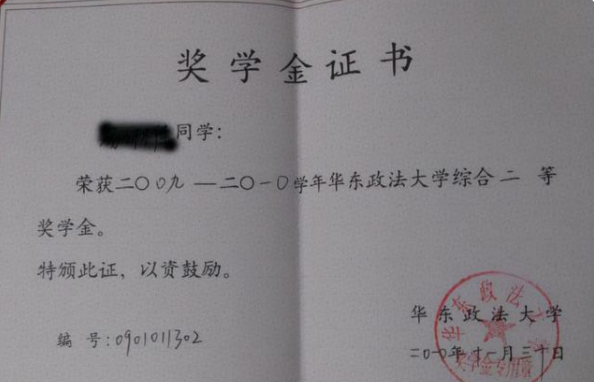 奖学金证书
同学：
荣获二〇〇九—二〇一〇学年华东政法大学综合二等
奖学金。
特颁此证，以资鼓励。
华东政法大学
编号：0901011302
二〇一〇年十一月三十日
华东政法大学
奖学金专用章